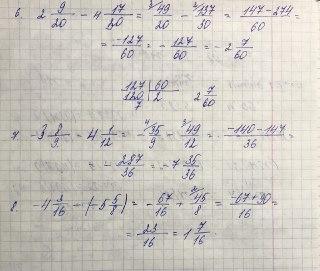 6. 2 9/20 - 4 17/30 = ³49/20 - ²137/30 = (147-274)/60 =
= -127/60 = - 127/60 = -2 7/60
127 | 60
120 | 2 2 7/60
7
7. -3 8/9 - 4 1/12 = -⁴35/9 - ³49/12 = (-140-147)/36 =
= - 287/36 = -7 35/36
8. -4 3/16 - (-5 5/8) = - 67/16 + ²45/8 = (-67+90)/16 =
= 23/16 = 1 7/16.